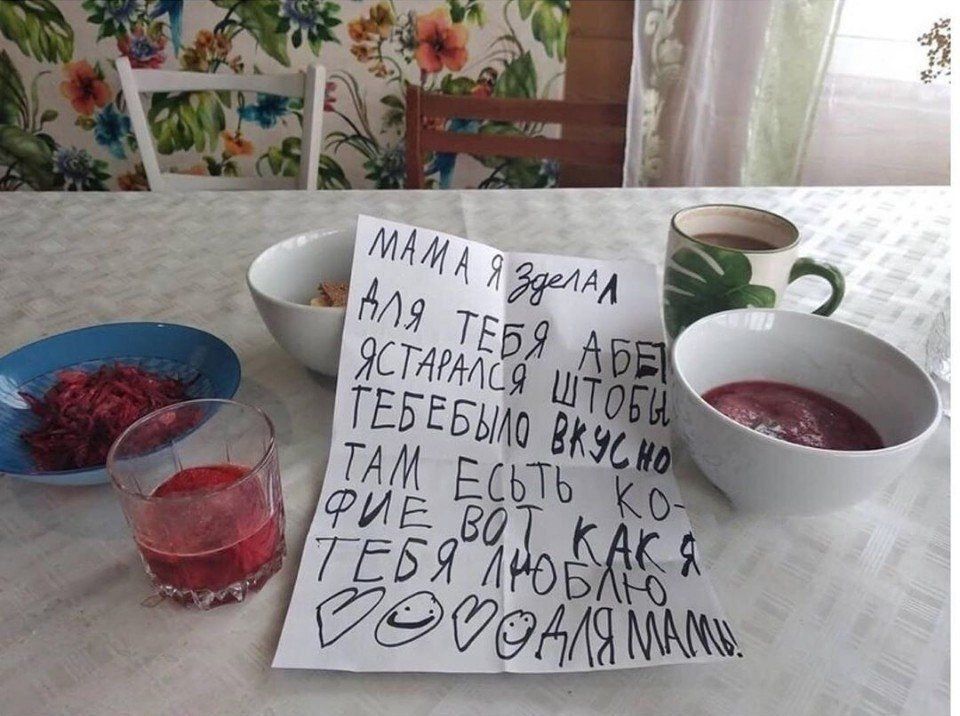 МАМА Я Зделал
ДЛЯ ТЕБЯ АБЕТ
ЯСТАРАЛСЯ ШТОБЫ
ТЕБЕБЫЛО ВКУСНО
ТАМ ЕСЬТЬ КО-
ФИЕ ВОТ КАК Я
ТЕБЯ ЛЮБЛЮ
ДЛЯ МАМЫ!